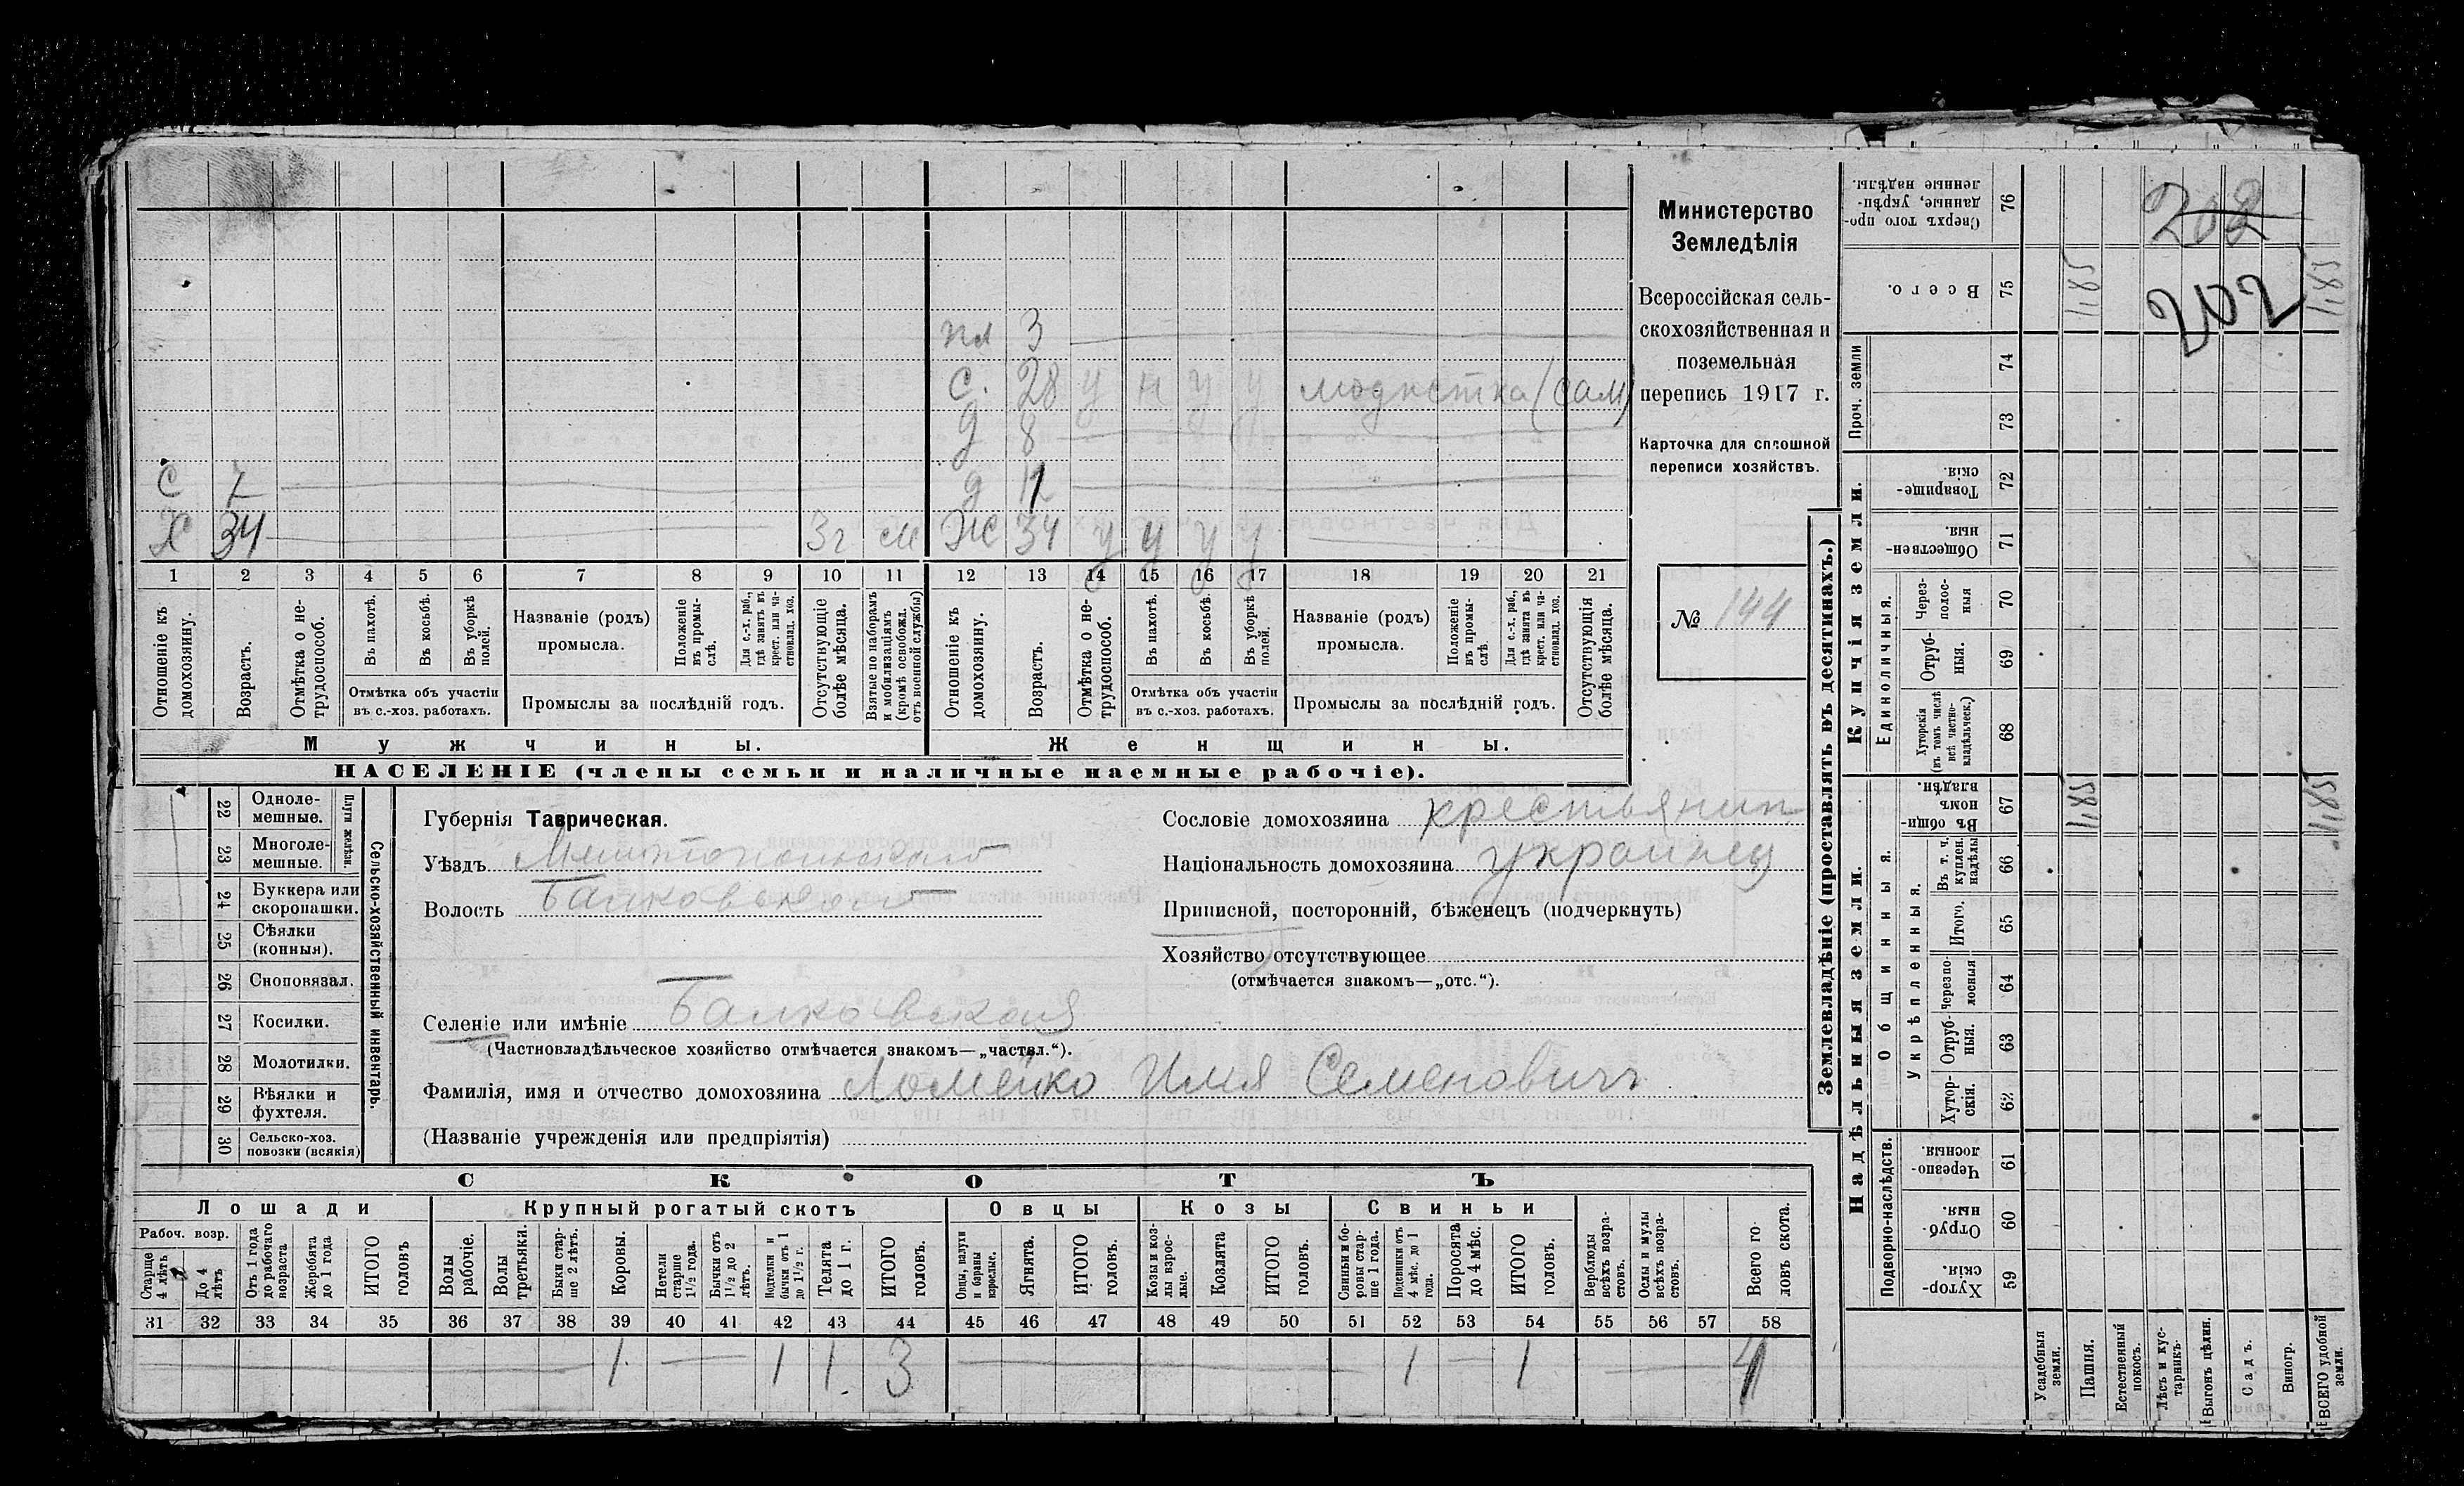 Министерство
Земледѣлія
Всероссійская сель-
скохозяйственная и
поземельная
перепись 1917 г.
Карточка для сплошной
переписи хозяйствъ.
№ 144
пл 3
С. 28 у н у у модистка (сам)
д 8
С 7 д 12
Х 34 3г м Ж 34 у у у у
1 2 3 4 5 6 7 8 9 10 11 12 13 14 15 16 17 18 19 20 21
Отношеніе къ домохозяину.
Возрастъ.
Отмѣтка о не-трудоспособ.
Въ пахотѣ.
Въ косьбѣ.
Въ уборкѣ полей.
Отмѣтка объ участіи
въ с.-хоз. работахъ.
Названіе (родъ)
промысла.
Положеніе въ промы-слѣ.
Для с.-х. раб., гдѣ занятъ въ крест. или ча-стновлад. хоз.
Промыслы за послѣдній годъ.
Отсутствующіе болѣе мѣсяца.
Взятые по наборамъ и мобилизаціямъ (кромѣ освобожд. отъ военной службы)
Отношеніе къ домохозяину.
Возрастъ.
Отмѣтка о не-трудоспособ.
Въ пахотѣ.
Въ косьбѣ.
Въ уборкѣ полей.
Отмѣтка объ участіи
въ с.-хоз. работахъ.
Названіе (родъ)
промысла.
Положеніе въ промы-слѣ
Для с.-х. раб., гдѣ занята въ крест. или ча-стновлад. хоз.
Промыслы за послѣдній годъ.
Отсутствующія болѣе мѣсяца.
Мужчины.
Женщины.
НАСЕЛЕНІЕ (члены семьи и наличные наемные рабочіе).
22 Одноле-мешные.
23 Многоле-мешные.
Плуги желѣзн.
24 Буккера или скоропашки.
25 Сѣялки (конныя).
26 Сноповязал.
27 Косилки.
28 Молотилки.
29 Вѣялки и фухтеля.
30 Сельско-хоз. повозки (всякія)
Сельско-хозяйственный инвентарь.
Губернія Таврическая.
Уѣздъ Мелитопольскаго
Волость Балковской
Селеніе или имѣніе Балковская
(Частновладѣльческое хозяйство отмѣчается знакомъ—„частвл.“).
Фамилія, имя и отчество домохозяина Ломейко Илья Семеновичъ
(Названіе учрежденія или предпріятія)
Сословіе домохозяина крестьянин
Національность домохозяина украинец
Приписной, посторонній, бѣженецъ (подчеркнуть)
Хозяйство отсутствующее
(отмѣчается знакомъ—„отс.“).
СКОТЪ
Лошади
Крупный рогатый скотъ
Овцы
Козы
Свиньи
Рабоч. возр.
Старше 4 лѣтъ
До 4 лѣтъ
Отъ 1 года до рабочаго возраста
Жеребята до 1 года
ИТОГО головъ
Волы рабочіе.
Волы третьяки.
Быки стар-ше 2 лѣтъ.
Коровы.
Нетели старше 1½ года.
Бычки отъ 1½ до 2 лѣтъ.
Подтелки и бычки отъ 1 до 1½ г.
Телята до 1 г.
ИТОГО головъ.
Овцы, валухи и бараны взрослые.
Ягнята.
ИТОГО головъ.
Козы и коз-лы взрос-лые.
Козлята
ИТОГО головъ.
Свиньи и бо-ровы стар-ше 1 года.
Подсвинки отъ 4 мѣс. до 1 года.
Поросята до 4 мѣс.
ИТОГО головъ.
Верблюды всѣхъ возра-стовъ.
Ослы и мулы всѣхъ возра-стовъ.
Всего го-ловъ скота.
31 32 33 34 35 36 37 38 39 40 41 42 43 44 45 46 47 48 49 50 51 52 53 54 55 56 57 58
1 1 1 3 1 1 4
Землевладѣніе (проставлять въ десятинахъ.)
Купчія земли.
Надѣльныя земли.
76 Сверхъ того про-данные, укрѣп-ленные надѣлы.
75 Всего.
1185 1185
Проч. земли
74
73
72 Товарище-скія.
71 Обществен-ныя.
Единоличныя.
70 Через-полос-ныя
69 Отруб-ныя.
68 Хуторскія (въ томъ числѣ всѣ частно-владѣльческ.)
Общинныя.
67 Въ общи-номъ владѣн.
1185 1185
Укрѣпленныя.
66 Въ т. ч. куплен. надѣлы
65 Итого.
64 Черезпо-лосныя
63 Отруб-ныя.
62 Хутор-скія.
Подворно-наслѣдств.
61 Черезпо-лосныя.
60 Отруб-ныя.
59 Хутор-скія.
Усадебныя земли.
Пашня.
Естественный покосъ.
Лѣсъ и кус-тарникъ
Выгонъ цѣлин.
Садъ.
Виногр.
ВСЕГО удобной земли.
208
202